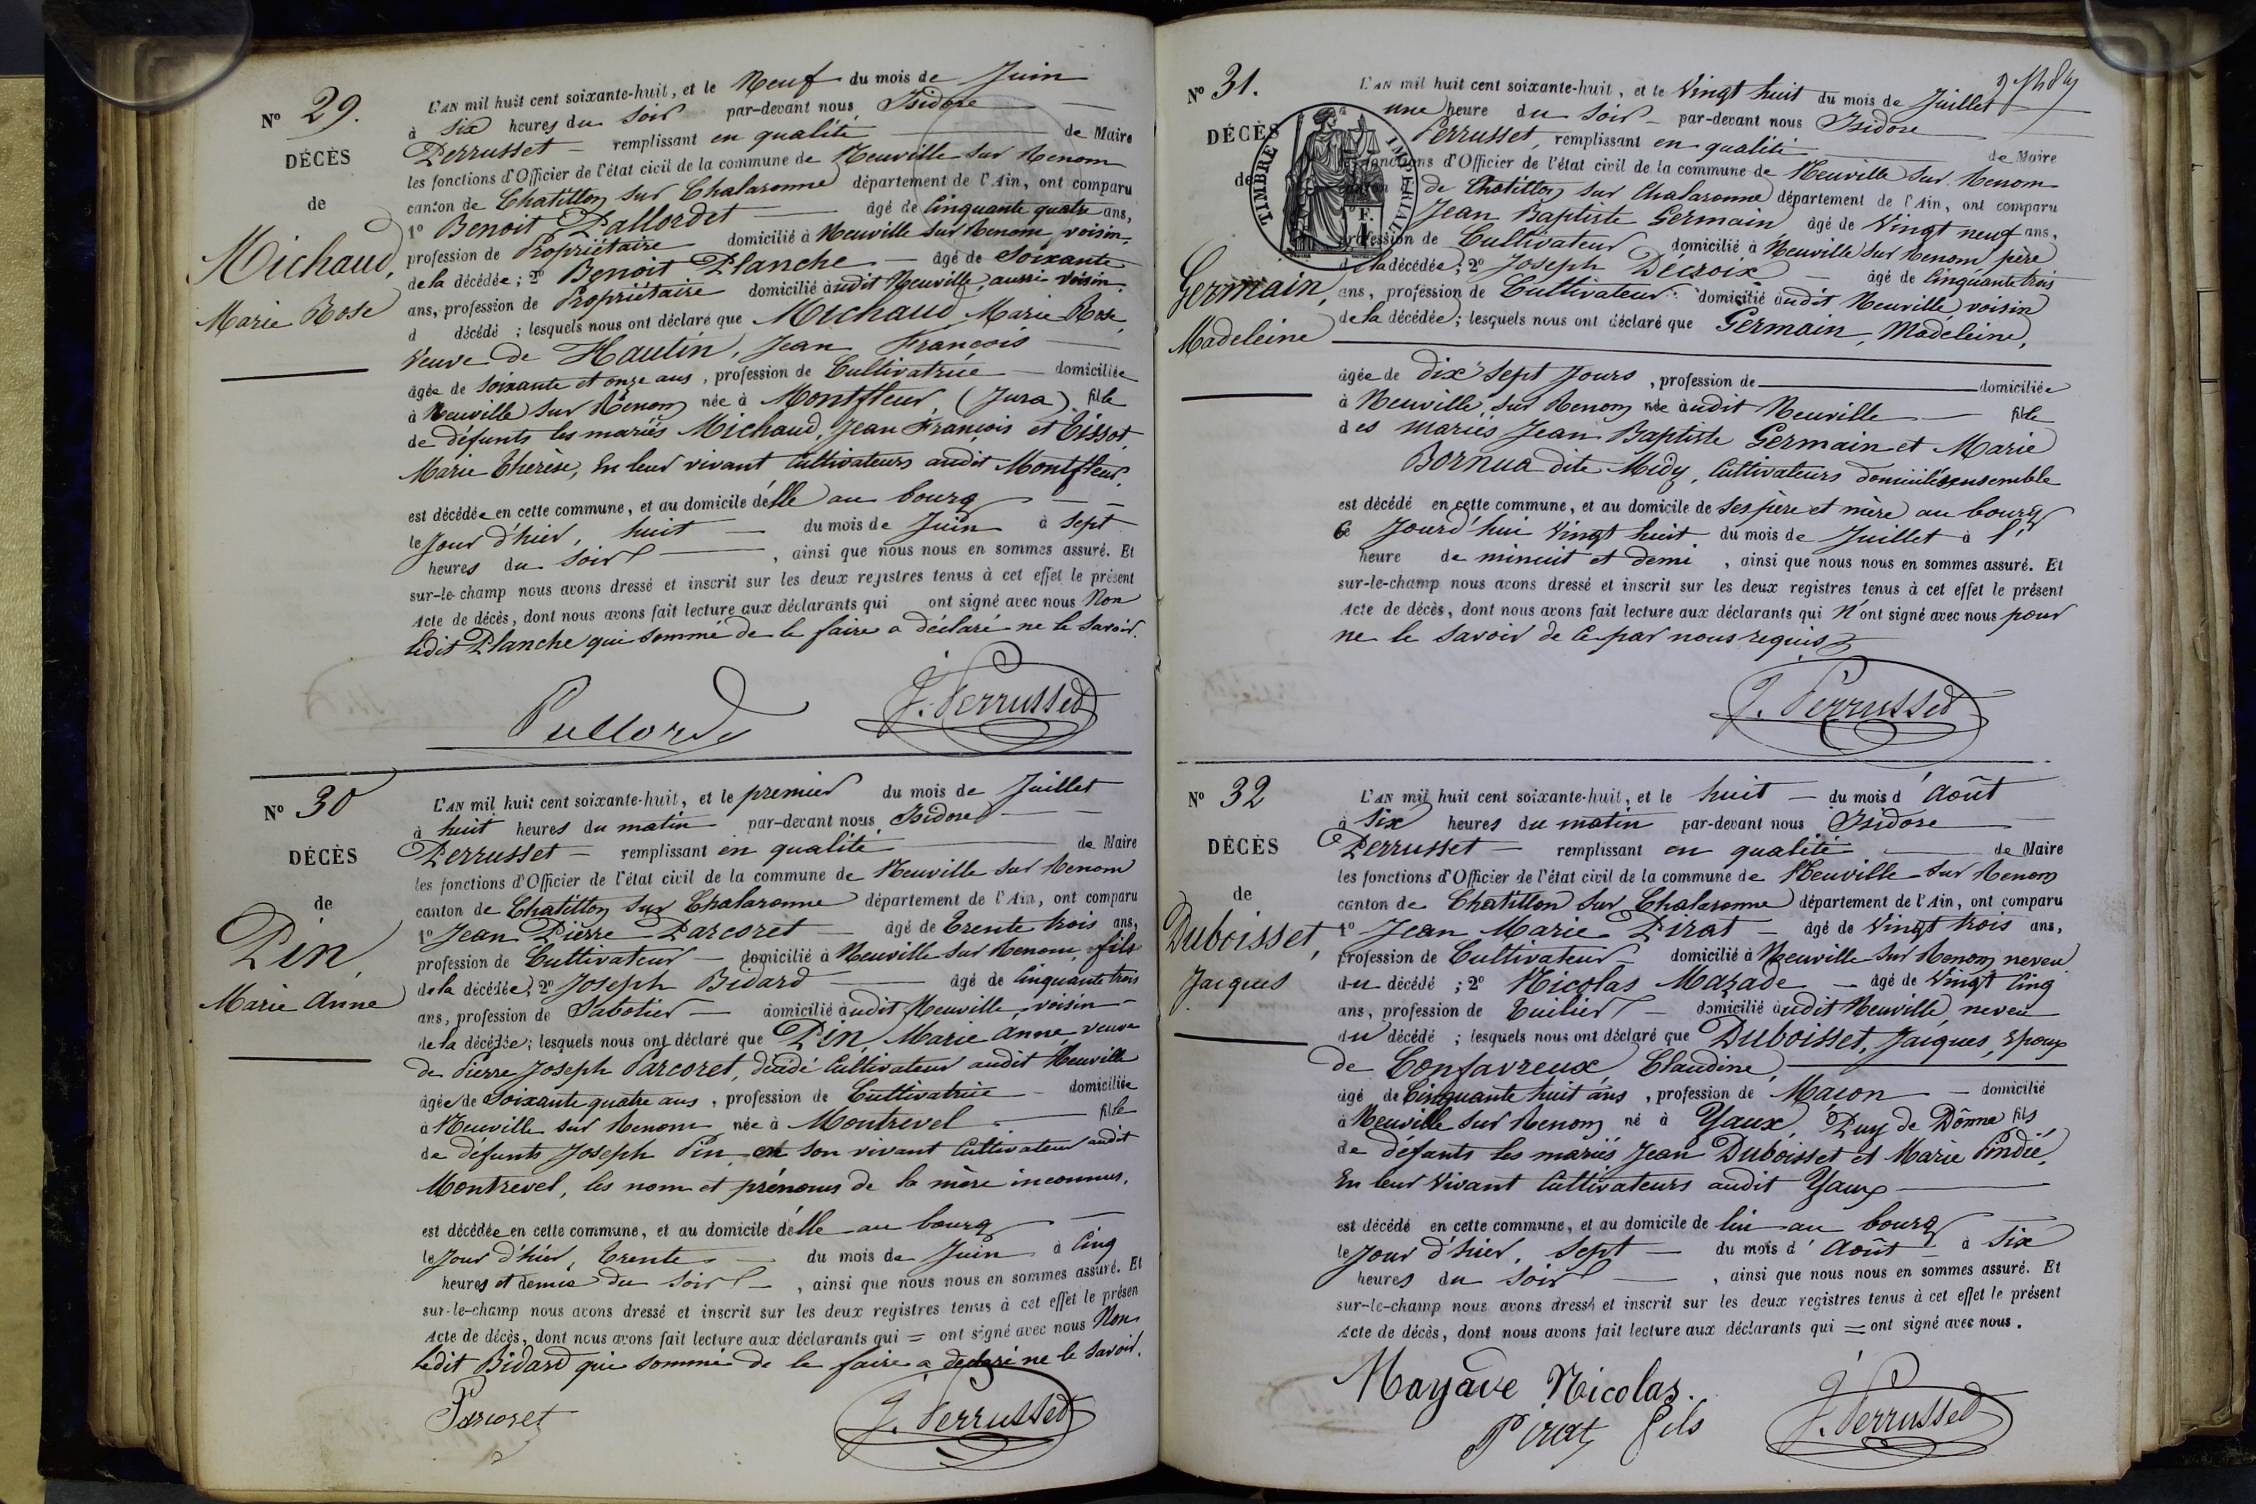 Nº 29.
DÉCÈS
de
Michaud,
Marie Rose
L'AN mil huit cent soixante-huit, et le Neuf du mois de Juin
à six heures du soir par-devant nous Isidore
Perrusset remplissant en qualité de Maire
les fonctions d'Officier de l'état civil de la commune de Neuville sur Renom
canton de Chatillon sur Chalaronne département de l'Ain, ont comparu
1º Benoit Pallordet âgé de Cinquante quatre ans,
profession de Propriétaire domicilié à Neuville sur Renom, voisin,
de la décédée; 2º Benoit Planche âgé de Soixante
ans, profession de Propriétaire domicilié audit Neuville, aussi voisin.
d décédé ; lesquels nous ont déclaré que Michaud Marie Rose,
Veuve de Hautin, Jean François
âgée de soixante et onze ans, profession de Cultivatrice domiciliée
à Neuville sur Renom née à Montfleur, (Jura) fille
de défunts les mariés Michaud, Jean François et Tissot,
Marie Thérèse, En leur vivant Cultivateurs audit Montfleur,
est décédée en cette commune, et au domicile d'elle au bourg
le Jour d'hier, huit du mois de Juin à sept
heures du soir , ainsi que nous nous en sommes assuré. Et
sur-le-champ nous avons dressé et inscrit sur les deux registres tenus à cet effet le présent
Acte de décès, dont nous avons fait lecture aux déclarants qui ont signé avec nous Non
ledit Planche qui sommé de le faire a déclaré ne le savoir.
J. Perrusset
Nº 30
DÉCÈS
de
Pin,
Marie Anne
L'AN mil huit cent soixante-huit, et le premier du mois de Juillet
à huit heures du matin par-devant nous Isidore
Perrusset remplissant en qualité de Maire
les fonctions d'Officier de l'état civil de la commune de Neuville sur Renom
canton de Chatillon sur Chalaronne département de l'Ain, ont comparu
1º Jean Pierre Parcoret âgé de Trente trois ans,
profession de Cultivateur domicilié à Neuville sur Renom, fils
de la décédée, 2º Joseph Bidard âgé de Cinquante trois
ans, profession de Sabotier domicilié audit Neuville, voisin
de la décédée; lesquels nous ont déclaré que Pin, Marie Anne, veuve
de Pierre Joseph Parcoret, décédé Cultivateur audit Neuville
âgée de Soixante quatre ans, profession de Cultivatrice domiciliée
à Neuville sur Renom née à Montrevel fille
de défunts Joseph Pin en son vivant Cultivateur audit
Montrevel, les nom et prénoms de la mère inconnus,
est décédée en cette commune, et au domicile d'elle au bourg
le Jour d'hier, Trente du mois de Juin à Cinq
heures et demie du soir , ainsi que nous nous en sommes assuré. Et
sur-le-champ nous avons dressé et inscrit sur les deux registres tenus à cet effet le présen
Acte de décès, dont nous avons fait lecture aux déclarants qui = ont signé avec nous Non
ledit Bidard qui sommé de le faire a déclaré ne le savoir.
Parcoret
J. Perrusset
Nº 31.
DÉCÈS
de
Germain,
Madeleine
TIMBRE IMPERIAL
1 F.
L'AN mil huit cent soixante-huit, et le Vingt huit du mois de Juillet
une heure du soir par-devant nous Isidore
Perrusset, remplissant en qualité de Maire
les fonctions d'Officier de l'état civil de la commune de Neuville sur Renom
canton de Chatillon sur Chalaronne département de l'Ain, ont comparu
Jean Baptiste Germain âgé de Vingt neuf ans,
profession de Cultivateur domicilié à Neuville sur Renom père
de la décédée; 2º Joseph Décroix âgé de Cinquante trois
ans, profession de Cultivateur domicilié audit Neuville, voisin
de la décédée; lesquels nous ont déclaré que Germain, Madeleine,
âgée de dix sept Jours, profession de domiciliée
à Neuville, sur Renom née audit Neuville fille
des mariés Jean Baptiste Germain et Marie
Bornua dite Midy, Cultivateurs domiciliés ensemble
est décédé en cette commune, et au domicile de Ses père et mère au bourg
Ce Jourd'hui Vingt huit du mois de Juillet à l'
heure de minuit et demi , ainsi que nous nous en sommes assuré. Et
sur-le-champ nous avons dressé et inscrit sur les deux registres tenus à cet effet le présent
Acte de décès, dont nous avons fait lecture aux déclarants qui N'ont signé avec nous pour
ne le savoir de Ce par nous requis
J. Perrusset
Nº 32
DÉCÈS
de
Duboisset,
Jacques
L'AN mil huit cent soixante-huit, et le huit du mois d'Août
à Six heures du matin par-devant nous Isidore
Perrusset remplissant en qualité de Maire
les fonctions d'Officier de l'état civil de la commune de Neuville sur Renom
canton de Chatillon sur Chalaronne département de l'Ain, ont comparu
1º Jean Marie Pirat âgé de Vingt trois ans,
profession de Cultivateur domicilié à Neuville sur Renom neveu
du décédé ; 2º Nicolas Mazade âgé de Vingt Cinq
ans, profession de Tuilier domicilié audit Neuville, neveu
du décédé ; lesquels nous ont déclaré que Duboisset, Jacques, Epoux
de Confavreux, Claudine,
âgé de Cinquante huit ans, profession de Maçon domicilié
à Neuville sur Renom né à Yaux, Puy de Dôme fils
de défunts les mariés Jean Duboisset et Marie Pindié,
En leur Vivant Cultivateurs audit Yaux
est décédé en cette commune, et au domicile de lui au bourg
le Jour d'hier, Sept du mois d'Août à Six
heures du soir , ainsi que nous nous en sommes assuré. Et
sur-le-champ nous avons dressé et inscrit sur les deux registres tenus à cet effet le présent
Acte de décès, dont nous avons fait lecture aux déclarants qui = ont signé avec nous.
Mayave Nicolas.
Pirat fils
J. Perrusset